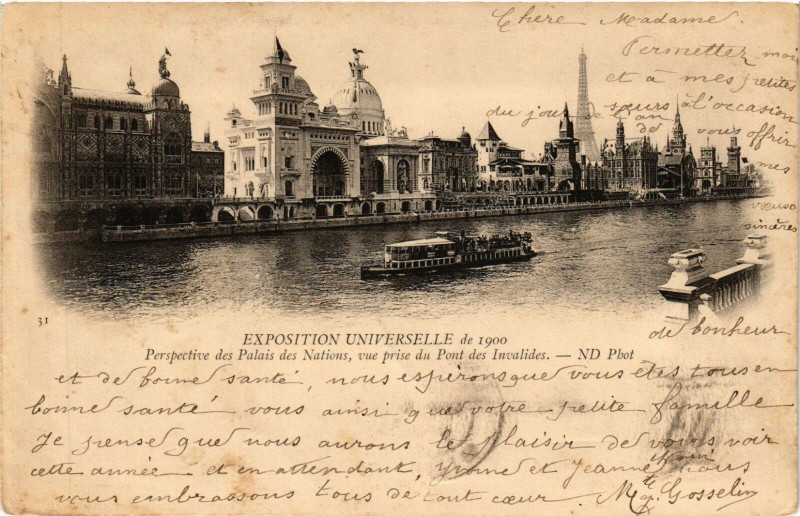 Chère Madame.
Permettez moi
et à mes petites
sœurs à l'occasion
du jour de l'an de vous offrir
mes
vœux
sincères
31
EXPOSITION UNIVERSELLE de 1900
Perspective des Palais des Nations, vue prise du Pont des Invalides. — ND Phot
de bonheur
et de bonne santé, nous espérons que vous êtes tous en
bonne santé vous ainsi que votre petite famille
Je pense que nous aurons le plaisir de vous voir
cette année et en attendant, Yvonne et Jeanne
vous embrassons tous de tout cœur. Mgte Gosselin